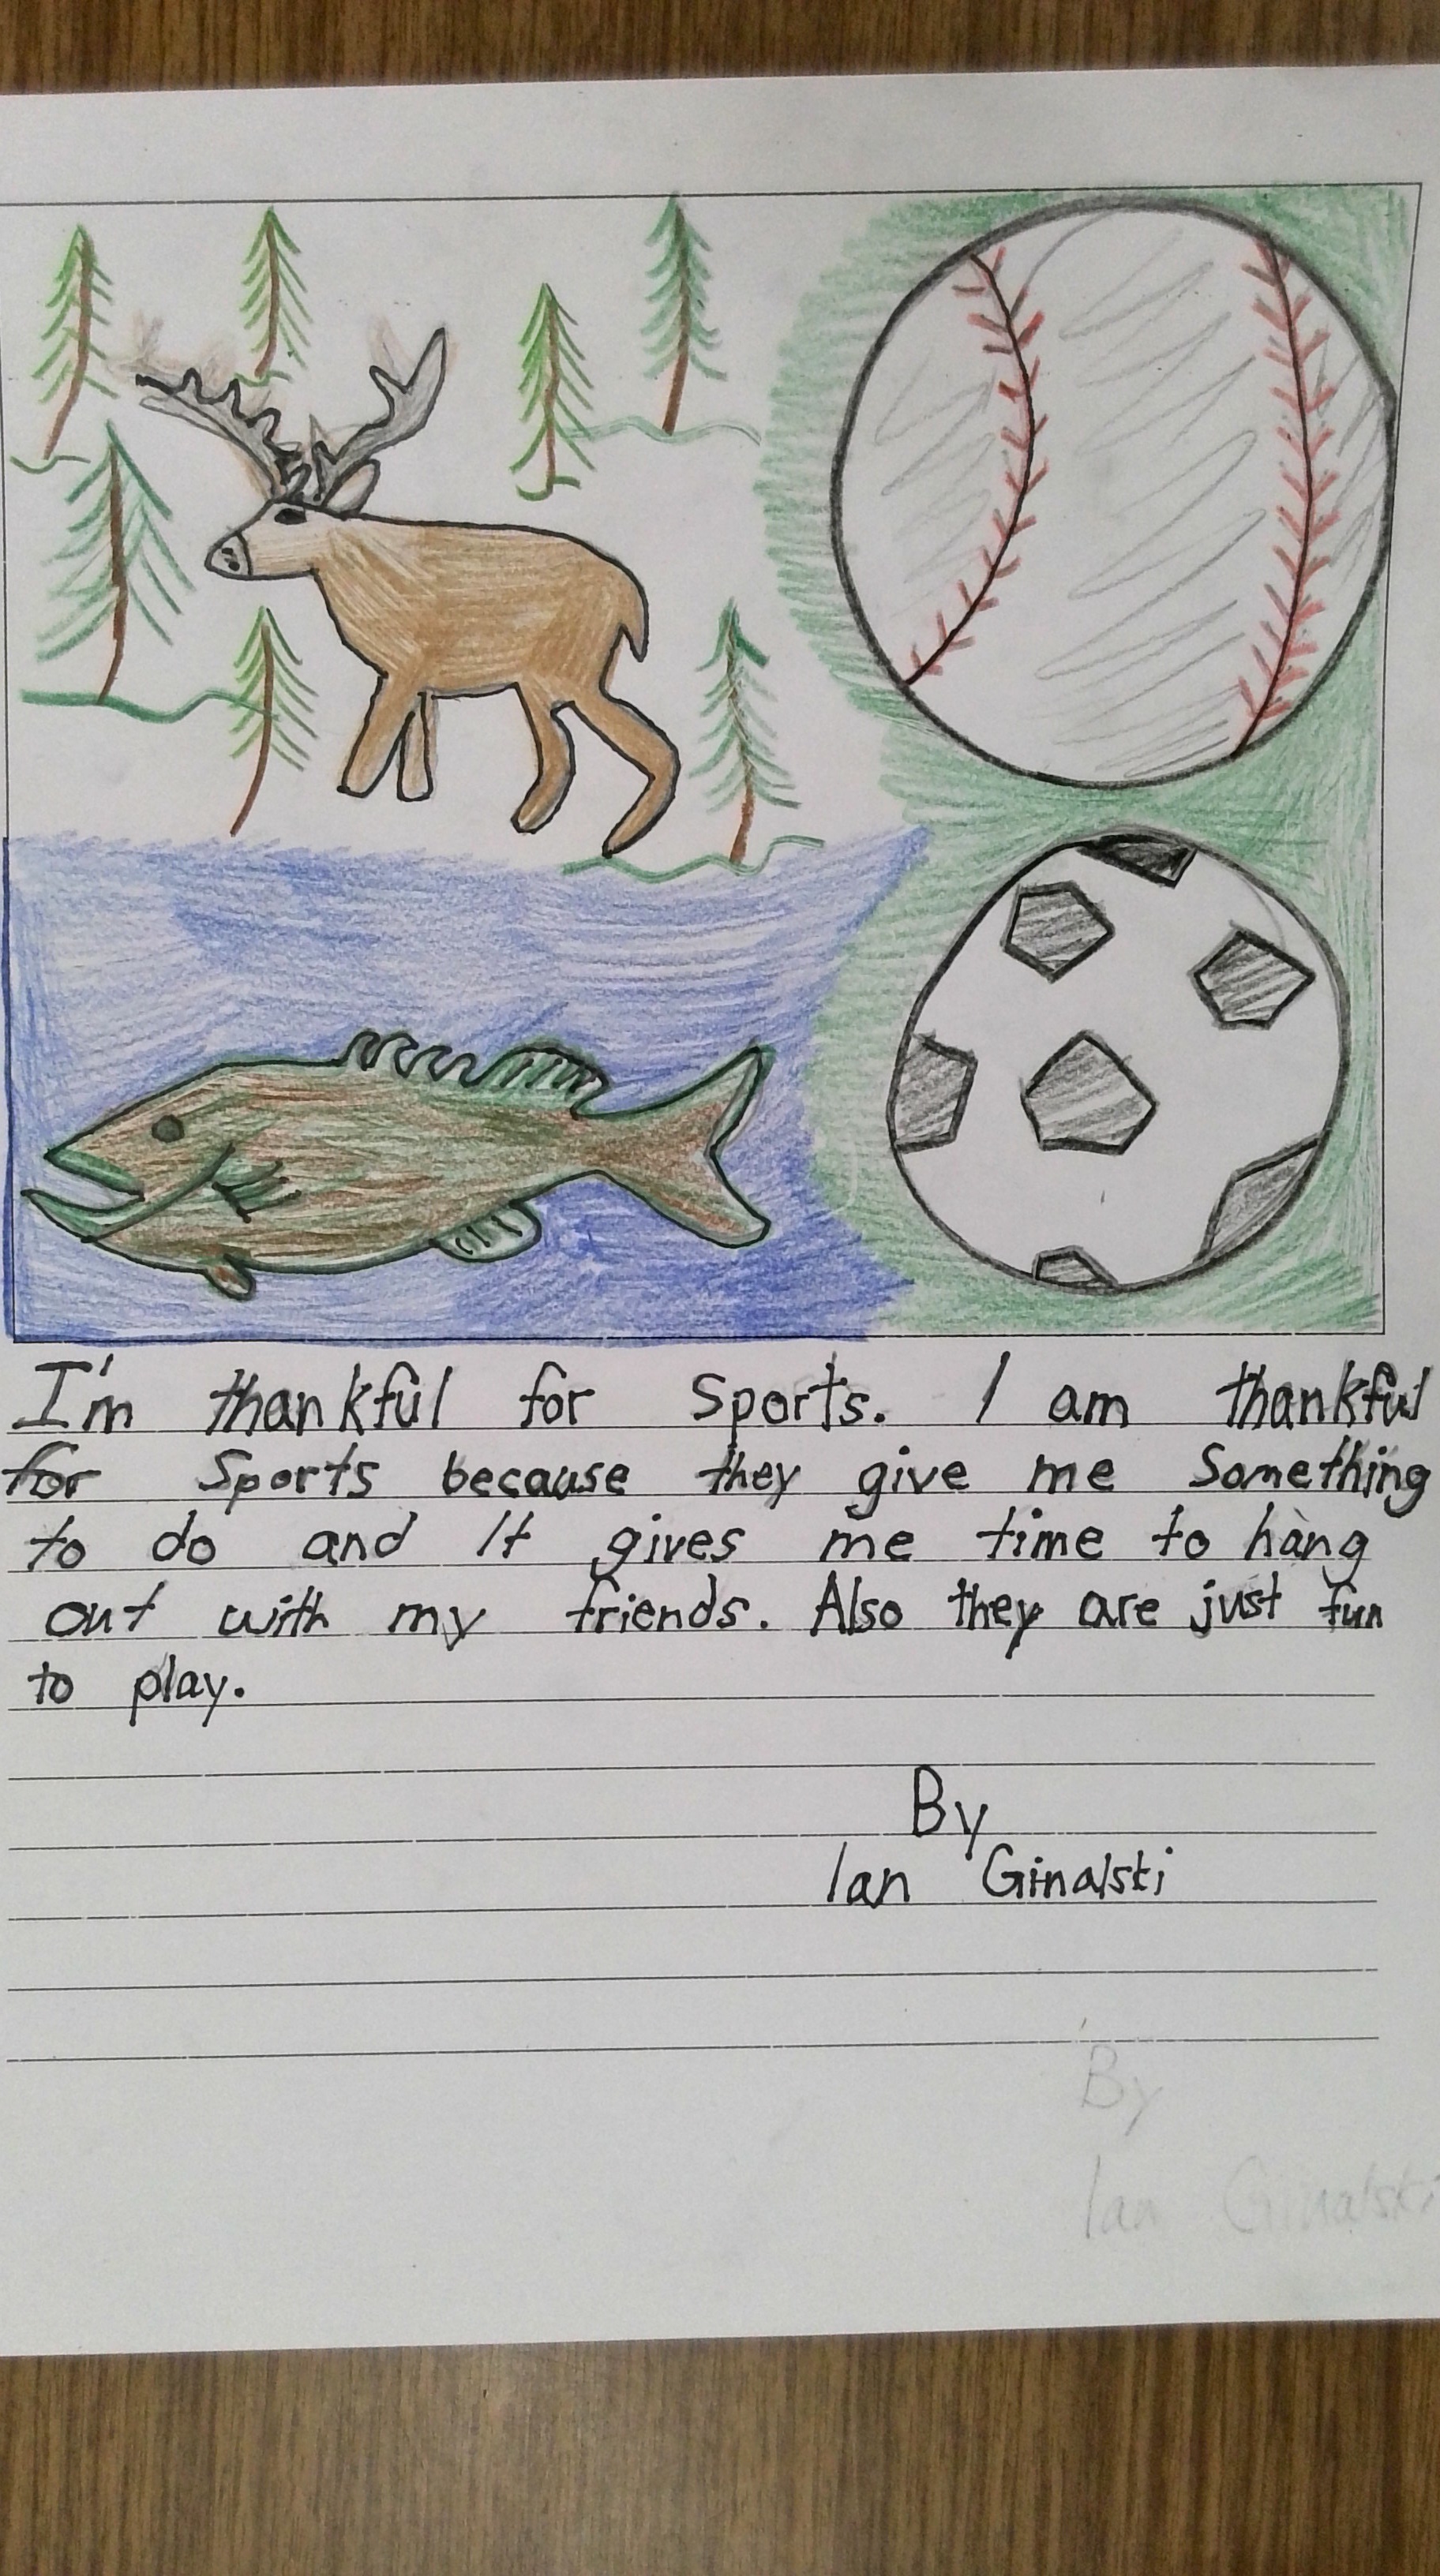 I'm thankful for Sports. I am thankful
for Sports because they give me Something
to do and It gives me time to hang
out with my friends. Also they are just fun
to play.
By
Ian Ginalski
By
Ian Ginalski